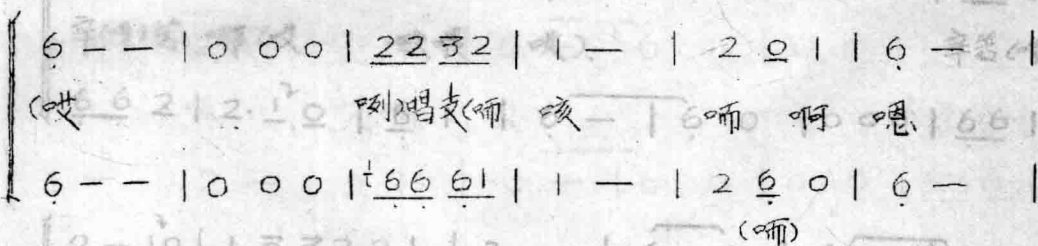 6̣ - - | 0 0 0 | 2 2 3 2 | 1 - | 2 0 1 | 6̣ - |
(哎 咧)唱支(嗬 咳 嗬 啊 嗯
6̣ - - | 0 0 0 | 1 6̣ 6̣ 6̣ 1 | 1 - | 2 6̣ 0 | 6̣ - |
(嗬)